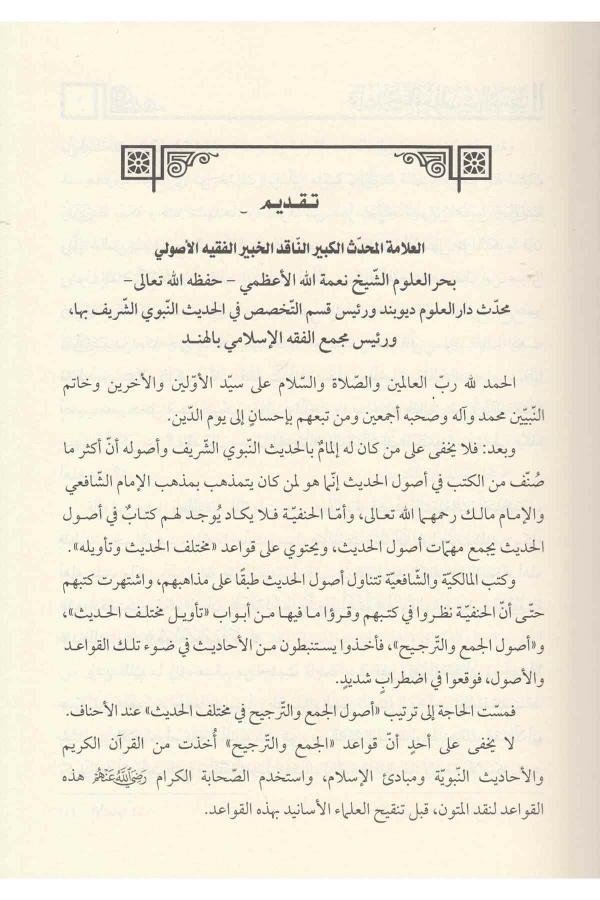 تـقـديـم
العلامة المحدّث الكبير النّاقد الخبير الفقيه الأصولي
بحر العلوم الشّيخ نعمة الله الأعظمي - حفظه الله تعالى-
محدّث دار العلوم ديوبند ورئيس قسم التّخصص في الحديث النّبوي الشّريف بها،
ورئيس مجمع الفقه الإسلامي بالهند
الحمد لله ربّ العالمين والصّلاة والسّلام على سيّد الأوّلين والآخرين وخاتم
النّبيّين محمد وآله وصحبه أجمعين ومن تبعهم بإحسانٍ إلى يوم الدّين.
وبعد: فلا يخفى على من كان له إلمامٌ بالحديث النّبوي الشّريف وأصوله أنّ أكثر ما
صُنّف من الكتب في أصول الحديث إنّما هو لمن كان يتمذهب بمذهب الإمام الشّافعي
والإمام مالك رحمهما الله تعالى، وأمّا الحنفيّة فلا يكاد يُوجد لهم كتابٌ في أصول
الحديث يجمع مهمّات أصول الحديث، ويحتوي على قواعد «مختلف الحديث وتأويله».
وكتب المالكيّة والشّافعيّة تتناول أصول الحديث طبقًا على مذاهبهم، واشتهرت كتبهم
حتّى أنّ الحنفيّة نظروا في كتبهم وقرؤا ما فيها من أبواب «تأويل مختلف الحديث»،
و«أصول الجمع والتّرجيح»، فأخذوا يستنبطون من الأحاديث في ضوء تلك القواعد
والأصول، فوقعوا في اضطرابٍ شديدٍ.
فمسّت الحاجة إلى ترتيب «أصول الجمع والتّرجيح في مختلف الحديث» عند الأحناف.
لا يخفى على أحدٍ أنّ قواعد «الجمع والتّرجيح» أُخذت من القرآن الكريم
والأحاديث النّبويّة ومبادئ الإسلام، واستخدم الصّحابة الكرام رضي الله عنهم هذه
القواعد لنقد المتون، قبل تنقيح العلماء الأسانيد بهذه القواعد.